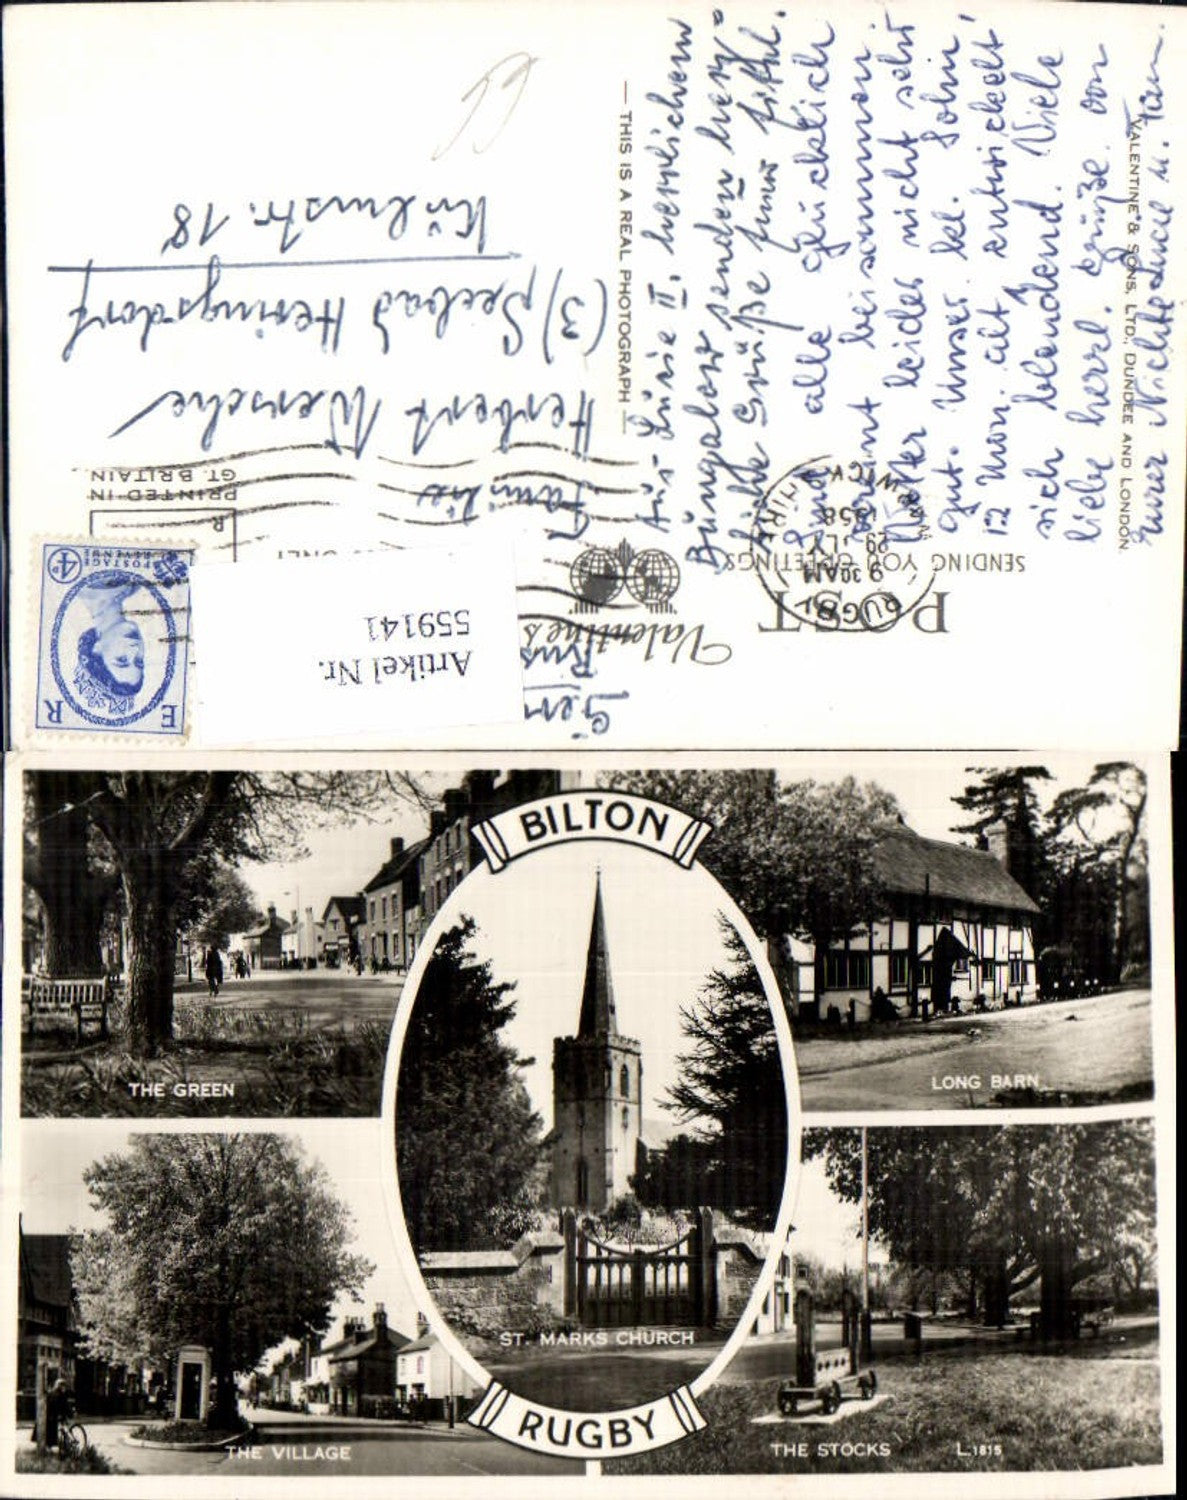 Valentine's
POST
SENDING YOU GREETINGS
THIS IS A REAL PHOTOGRAPH
VALENTINE & SONS, LTD., DUNDEE AND LONDON.
PRINTED IN
GT. BRITAIN
E R
POSTAGE
REVENUE
4D
RUGBY
9 30 AM
29 JLY
1958
Artikel Nr.
559141
Familie
Herbert
(3) Seebad Heringsdorf
Kulmstr. 18
herrlichem
Bungalow senden herz=
liche Grüße zum
alle glücklich
vereint beisammen.
leider nicht sehr
gut. Unser kl. Sohn,
12 Mon. alt, entwickelt
sich blendend. Viele
liebe herzl. Grüße von
Eurer Nichte u. Fam.
BILTON
RUGBY
THE GREEN
LONG BARN
ST. MARKS CHURCH
THE VILLAGE
THE STOCKS
L.1815